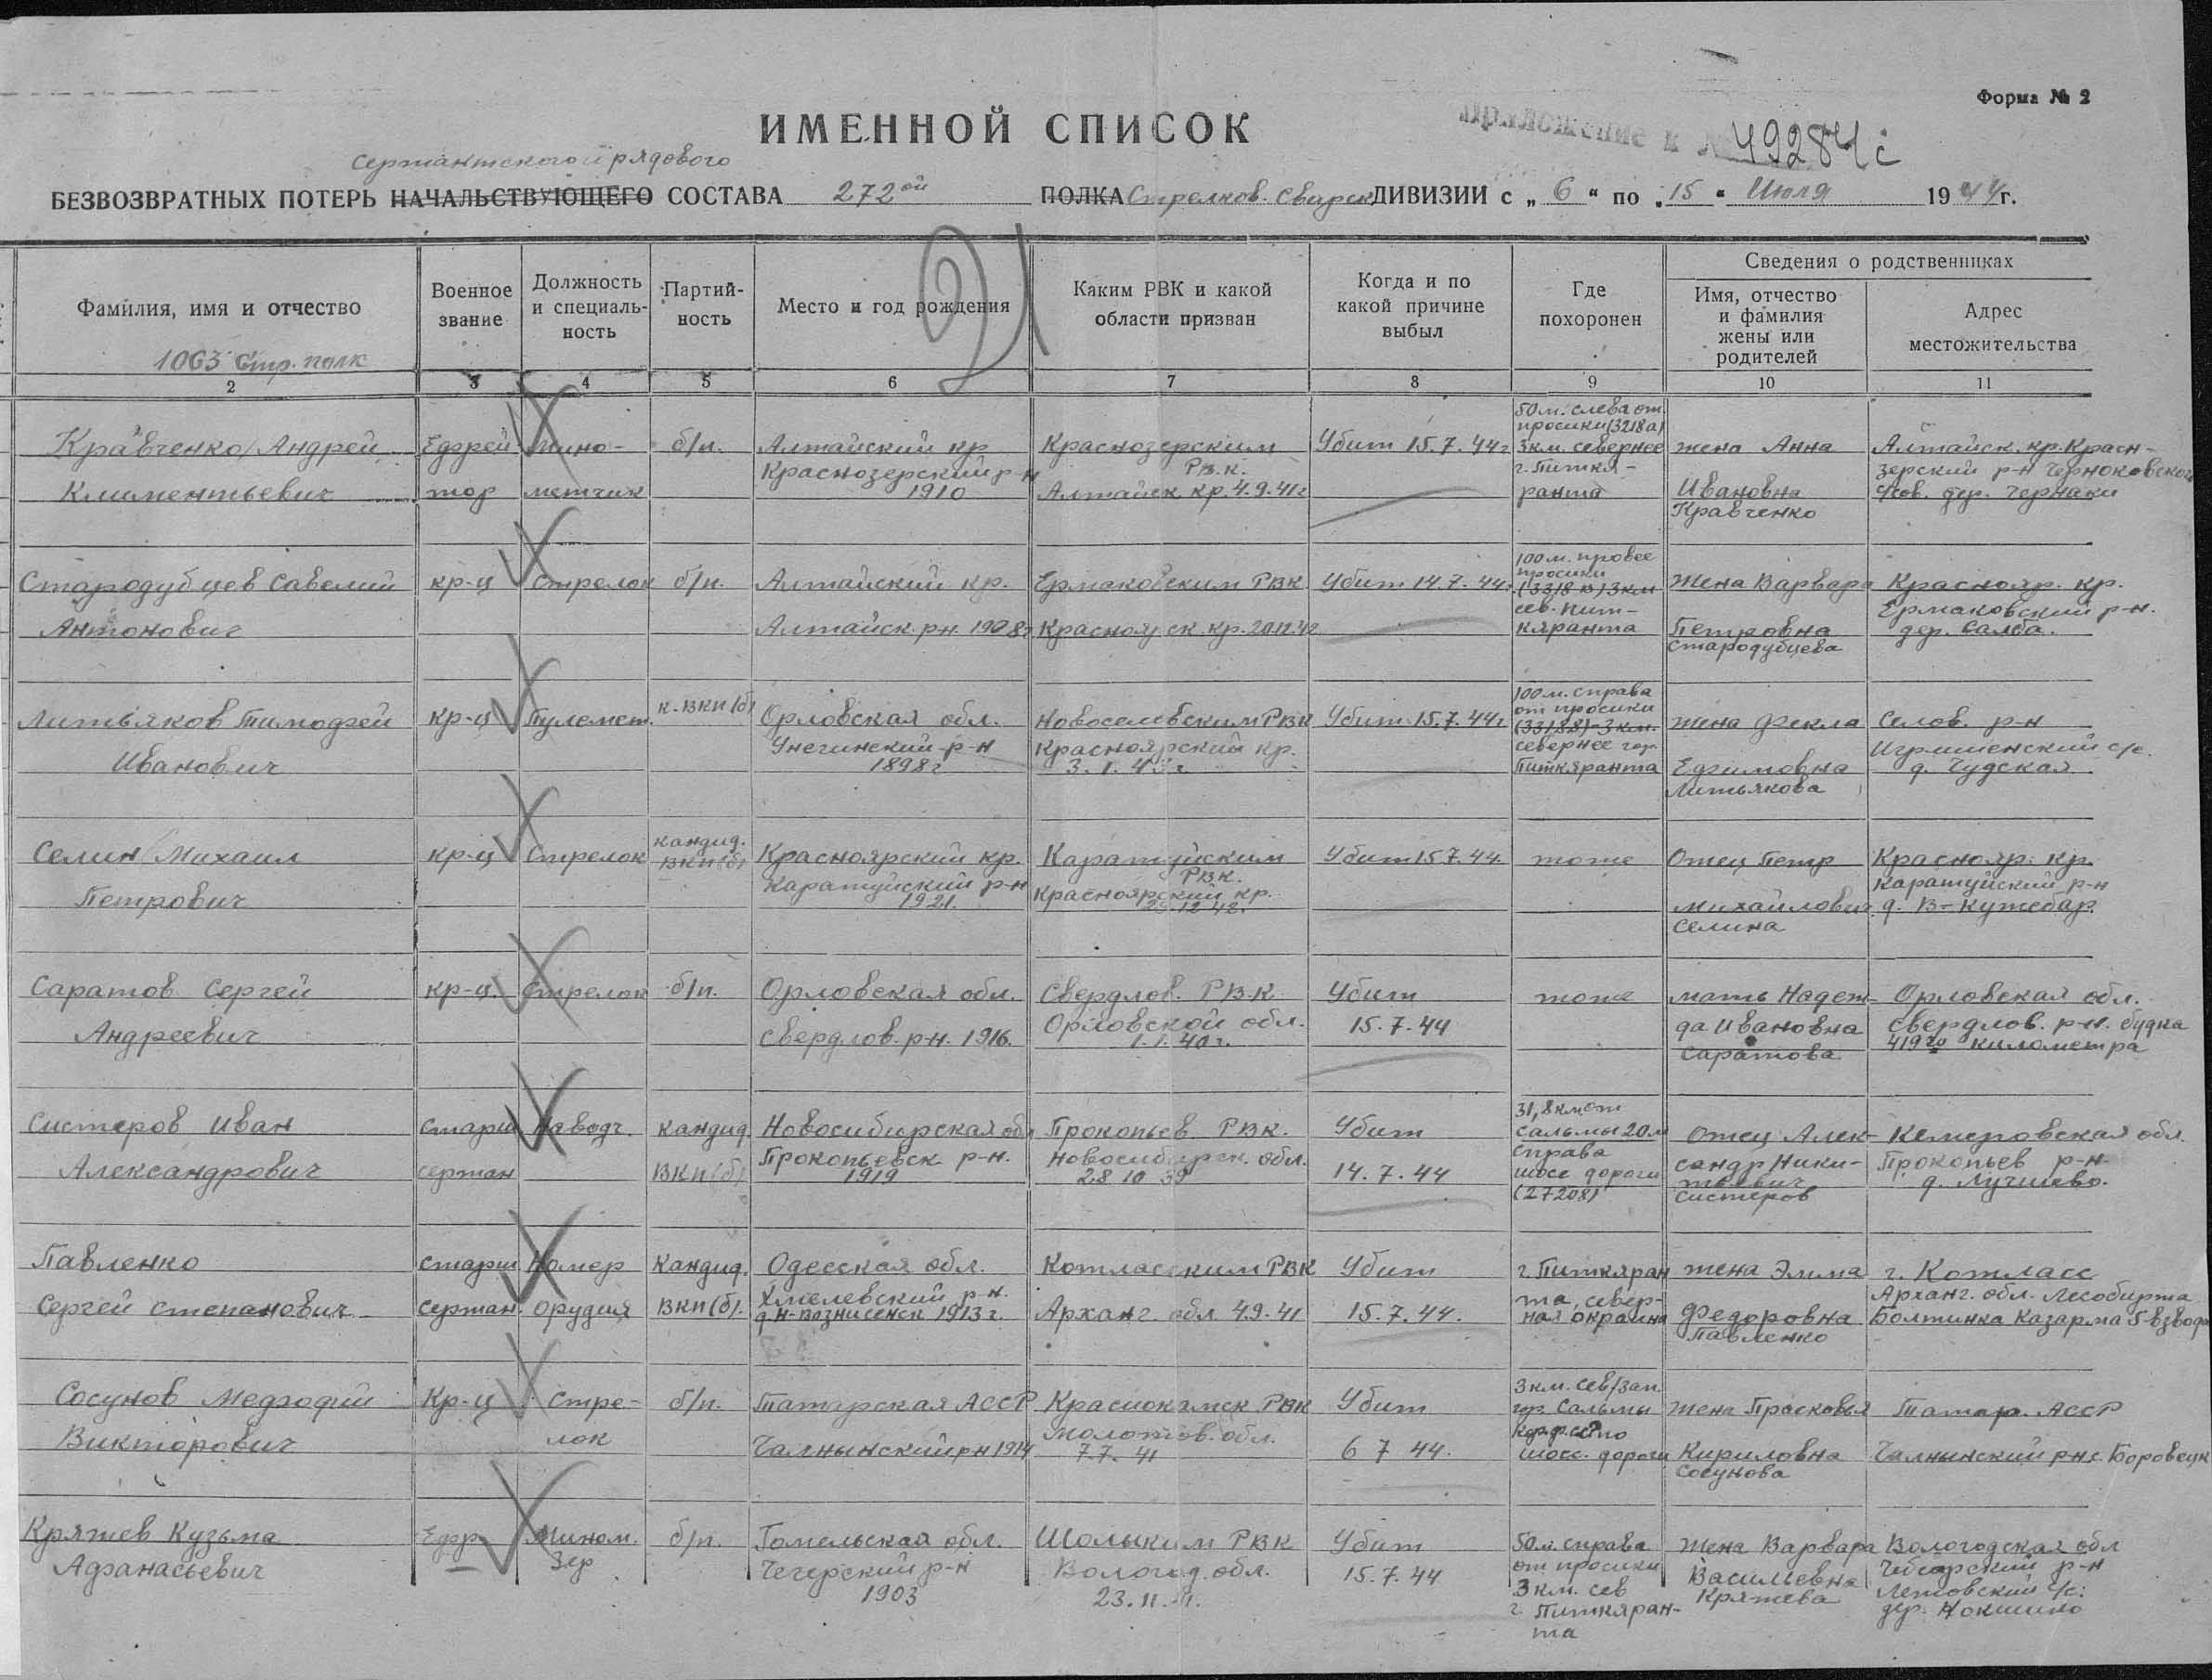 Форма № 2
ИМЕННОЙ СПИСОК
приложение к №
49284с
сержантского и рядового
БЕЗВОЗВРАТНЫХ ПОТЕРЬ НАЧАЛЬСТВУЮЩЕГО СОСТАВА 272ой ПОЛКА Стрелков. Свирск ДИВИЗИИ с „ 6 “ по „ 15 “ Июля 1944г.
Фамилия, имя и отчество
1063 Стр. полк
Военное звание
Должность и специаль-
ность
Партий-
ность
Место и год рождения
Каким РВК и какой
области призван
Когда и по
какой причине
выбыл
Где
похоронен
Сведения о родственниках
Имя, отчество
и фамилия
жены или
родителей
Адрес
местожительства
2 3 4 5 6 7 8 9 10 11
Кравченко Андрей
Климентьевич
Ефрей
тор
мино-
метчик
б/п.
Алтайский кр
Краснозерский р-н
1910
Краснозерским
РВ.К.
Алтайск кр. 4.9.41г
Убит 15.7.44г
50м. слева от
просики (3218а)
3км. севернее
г. Питкя-
ранта
жена Анна
Ивановна
Кравченко
Алтайск. кр. Красн-
зерский р-н
дер. Чернаки
Стародубцев Савелий
Антонович
кр-ц
Стрелок
б/п.
Алтайский кр.
Алтайск. рн. 1908г
Ермаковским РВК
Убит 14.7.44г
100м.
просики
(3318 в) 3км
сев. Пит-
кяранта
Жена Варвара
Петровна
Стародубцева
Краснояр. кр.
Ермаковский р-н.
дер. Салба.
Литьяков Тимофей
Иванович
кр-ц
Пулемет.
к. ВКП(б)
Орловская обл.
Унечинский р-н
1898г
Новоселовским РВК
Красноярский кр.
Убит 15.7.44г
100м. справа
от просики
(3318в) 3км.
севернее гор.
Питкяранта
жена Фекла
Ефимовна
Литьякова
Селов. р-н
д. Чудская
Селин Михаил
Петрович
кр-ц
Стрелок
кандид.
ВКП(б)
Красноярский кр.
Каратуйский р-н
1921.
Каратуйским
РВК.
Красноярский кр.
Убит 15.7.44.
тоже
Отец Петр
Михайлович
Селина
Краснояр. кр.
Каратуйский р-н
д. В-Кужебар.
Саратов Сергей
Андреевич
кр-ц.
Стрелок
б/п.
Орловская обл.
Свердлов. р-н. 1916.
Свердлов. РВК
Орловской обл.
1.1.40г.
Убит
15.7.44
тоже
мать Надеж-
да Ивановна
Саратова
Орловская обл.
Свердлов. р-н. будка
419го километра
Систеров Иван
Александрович
Старш
сержан
Наводч.
кандид.
ВКП(б)
Новосибирская обл
Прокопьевск р-н.
1919
Прокопьев РВК.
Новосибирск. обл.
28 10 39
Убит
14.7.44
31,8км от
Сальмы 20м
справа
шосе дороги
(27208)
Отец Алек-
сандр Ники-
тьевич
Систеров
Кемеровская обл.
Прокопьев р-н
д. Лучшево.
Павленко
Сергей Степанович
Старш
Сержан.
Номер
орудия
Кандид.
ВКП(б).
Одесская обл.
Хмелевский р-н.
д. Н-Вознисенск 1913г.
Котласским РВК
Арханг. обл 4.9.41
Убит
15.7.44.
г. Питкяран
та, север-
ная окраина
жена Эмма
Федоровна
Павленко
г. Котласс
Арханг. обл. Лесобиржа
Болтинка Казарма 5-взвода
Сосунов Мефодий
Викторович
Кр-ц
Стре-
лок
б/п.
Татарская АССР
Челнынский рн 1914
Краснокамск РВК
Молотов. обл.
7.7.41
Убит
6 7 44.
3км. сев/зап.
гор. Сальмы
шосс. дороги
жена Прасковья
Кириловна
Сосунова
Татар. АССР
Челнынский рн с. Боровецк
Кряжев Кузьма
Афанасьевич
Ефр
Мином.
б/п.
Гомельская обл.
Чечерский р-н
1903
РВК
Вологод. обл.
Убит
15.7.44
50м. справа
от просики
3км. сев
г. Питкяран-
та
жена Варвара
Васильевна
Кряжева
Вологодская обл
Чебсарский р-н
дер. Кокшино